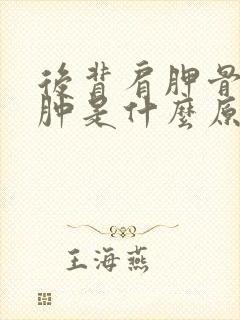 後背肩胛骨
肿是什麽原
王海燕